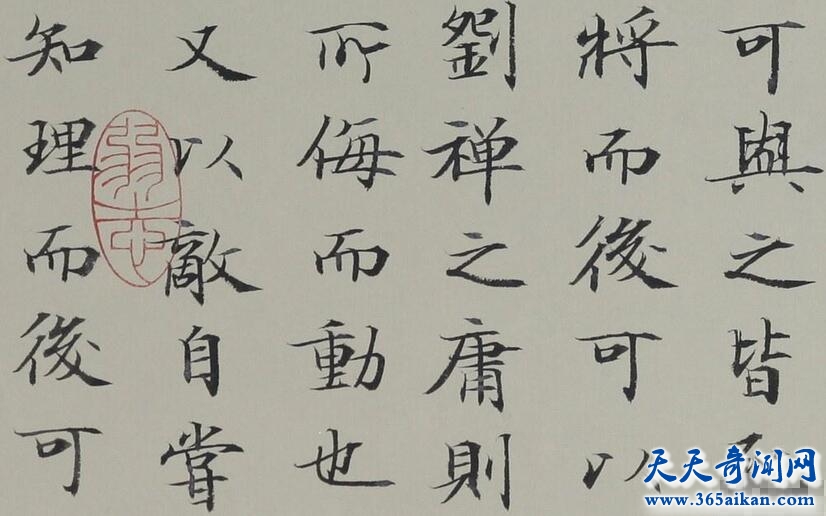 可與之皆
將而後可以
劉禅之庸則
所侮而動也
又以敵自嘗
知理而後可
天天奇闻网
www.365aikan.com